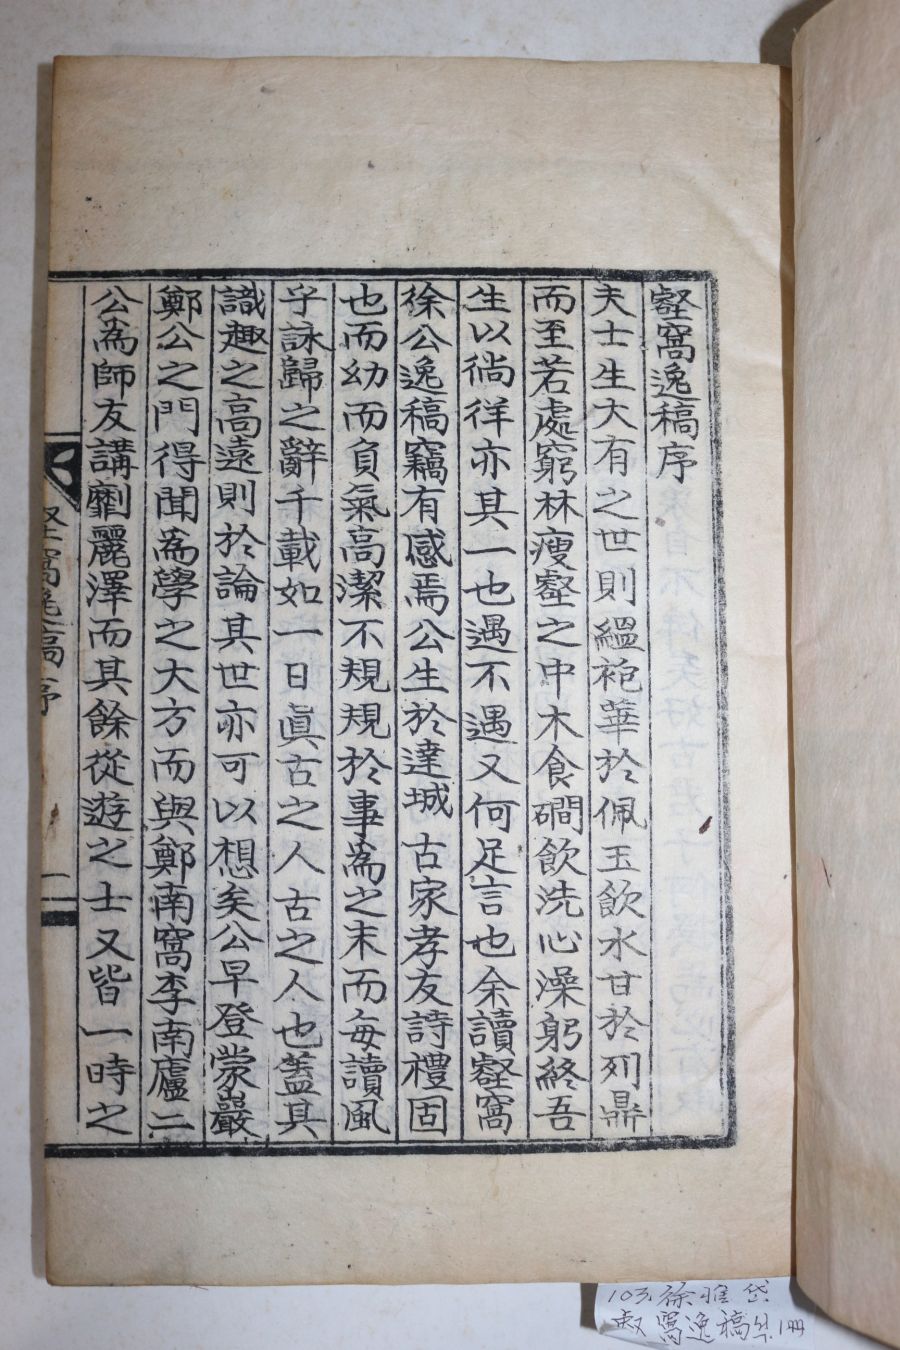 壑窩逸稿序
夫士生大有之世則縕袍華於佩玉飮水甘於列鼎
而至若處窮林瘦壑之中木食磵飮洗心澡躬終吾
生以徜徉亦其一也遇不遇又何足言也余讀壑窩
徐公逸稿竊有感焉公生於達城古家孝友詩禮固
也而幼而負氣高潔不規規於事爲之末而每讀風
乎詠歸之辭千載如一日眞古之人古之人也蓋其
識趣之高遠則於論其世亦可以想矣公早登蒙巖
鄭公之門得聞爲學之大方而與鄭南窩李南廬二
公爲師友講劘麗澤而其餘從遊之士又皆一時之
壑窩逸稿序
一
103. 徐雅
窩逸稿 1冊